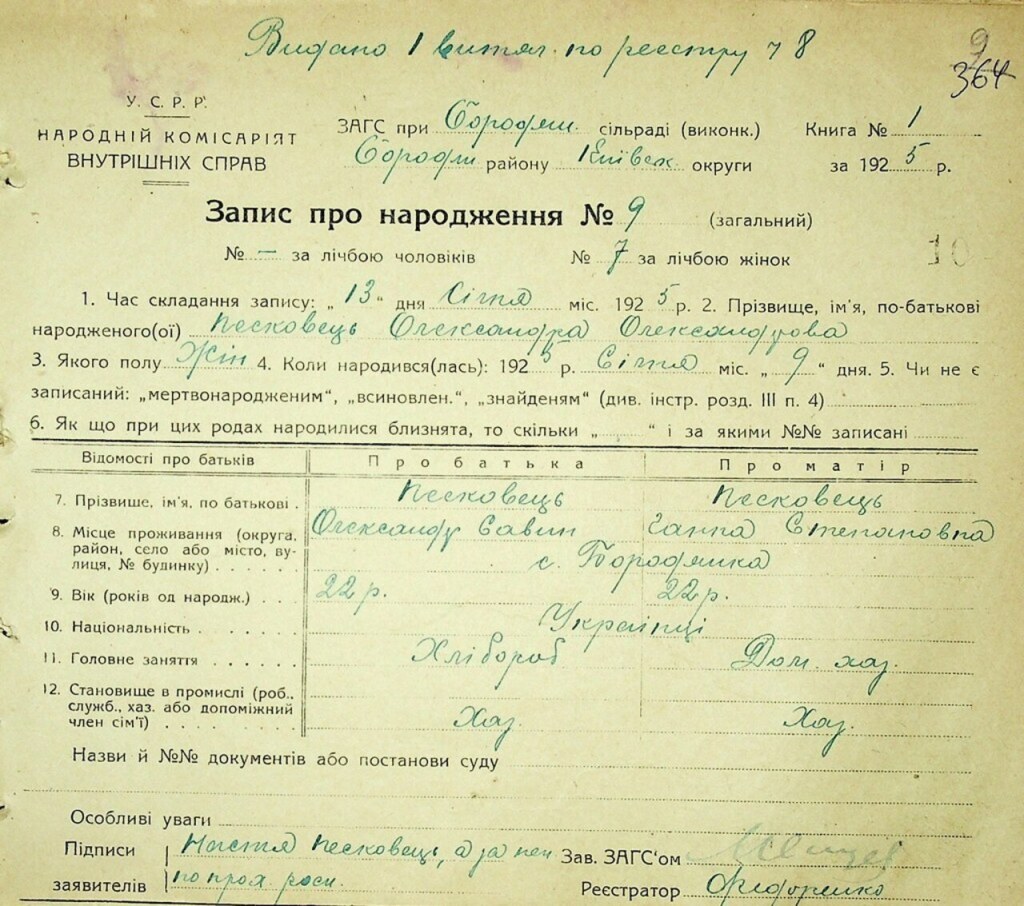 Видано 1 витяг. по реєстру ч 8
9
364
У. С. Р. Р.
НАРОДНІЙ КОМІСАРІЯТ
ВНУТРІШНІХ СПРАВ
ЗАГС при Бородян. сільраді (виконк.) Книга № 1
Бородян району Київськ округи за 1925 р.
Запис про народження № 9 (загальний)
№ — за лічбою чоловіків № 7 за лічбою жінок
10
1. Час складання запису: „13“ дня Січня міс. 1925 р. 2. Прізвище, ім'я, по-батькові
народженого(ої) Песковець Олександра Олександрова
3. Якого полу Жін 4. Коли народився(лась): 1925 р. Січня міс. „9“ дня. 5. Чи не є
записаний: „мертвонародженим“, „всиновлен.“, „знайденям“ (див. інстр. розд. III п. 4)
6. Як що при цих родах народилися близнята, то скільки „ “ і за якими №№ записані
Відомості про батьків Про батька Про матір
7. Прізвище, ім'я, по батькові . Песковець Песковець
Олександр Савин Ганна Степановна
8. Місце проживання (округа, район, село або місто, вулиця, № будинку) . . . . . с. Бородянка
9. Вік (років од народж.) . . 22 р. 22 р.
10. Національність . . . . . . Українці
11. Головне заняття . . . . . . Хлібороб Дом. хаз.
12. Становище в промислі (роб., служб., хаз. або допоміжний член сім'ї) . . . . Хаз. Хаз.
Назви й №№ документів або постанови суду
Особливі уваги
Підписи заявителів Настя Песковець, а за
Зав. ЗАГС'ом
Реєстратор